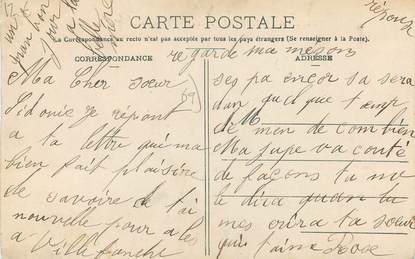 CARTE POSTALE
La Correspondance au recto n'est pas acceptée par tous les pays étrangers (Se renseigner à la Poste).
CORRESPONDANCE
ADRESSE
regarde ma meson
Ma Cher soeur
Sidonie je répont
a ta lettre qui ma
bien fait plaisire
de savoire de tai
nouvelle pour a les
a Villefranche
69
ses pa encor sa sera
dan quel que temp
de men de combien
Ma jupe va conté
de façons tu me
le dira quan tu
mes erira ta soeur
qui t'aime Rose
réponse